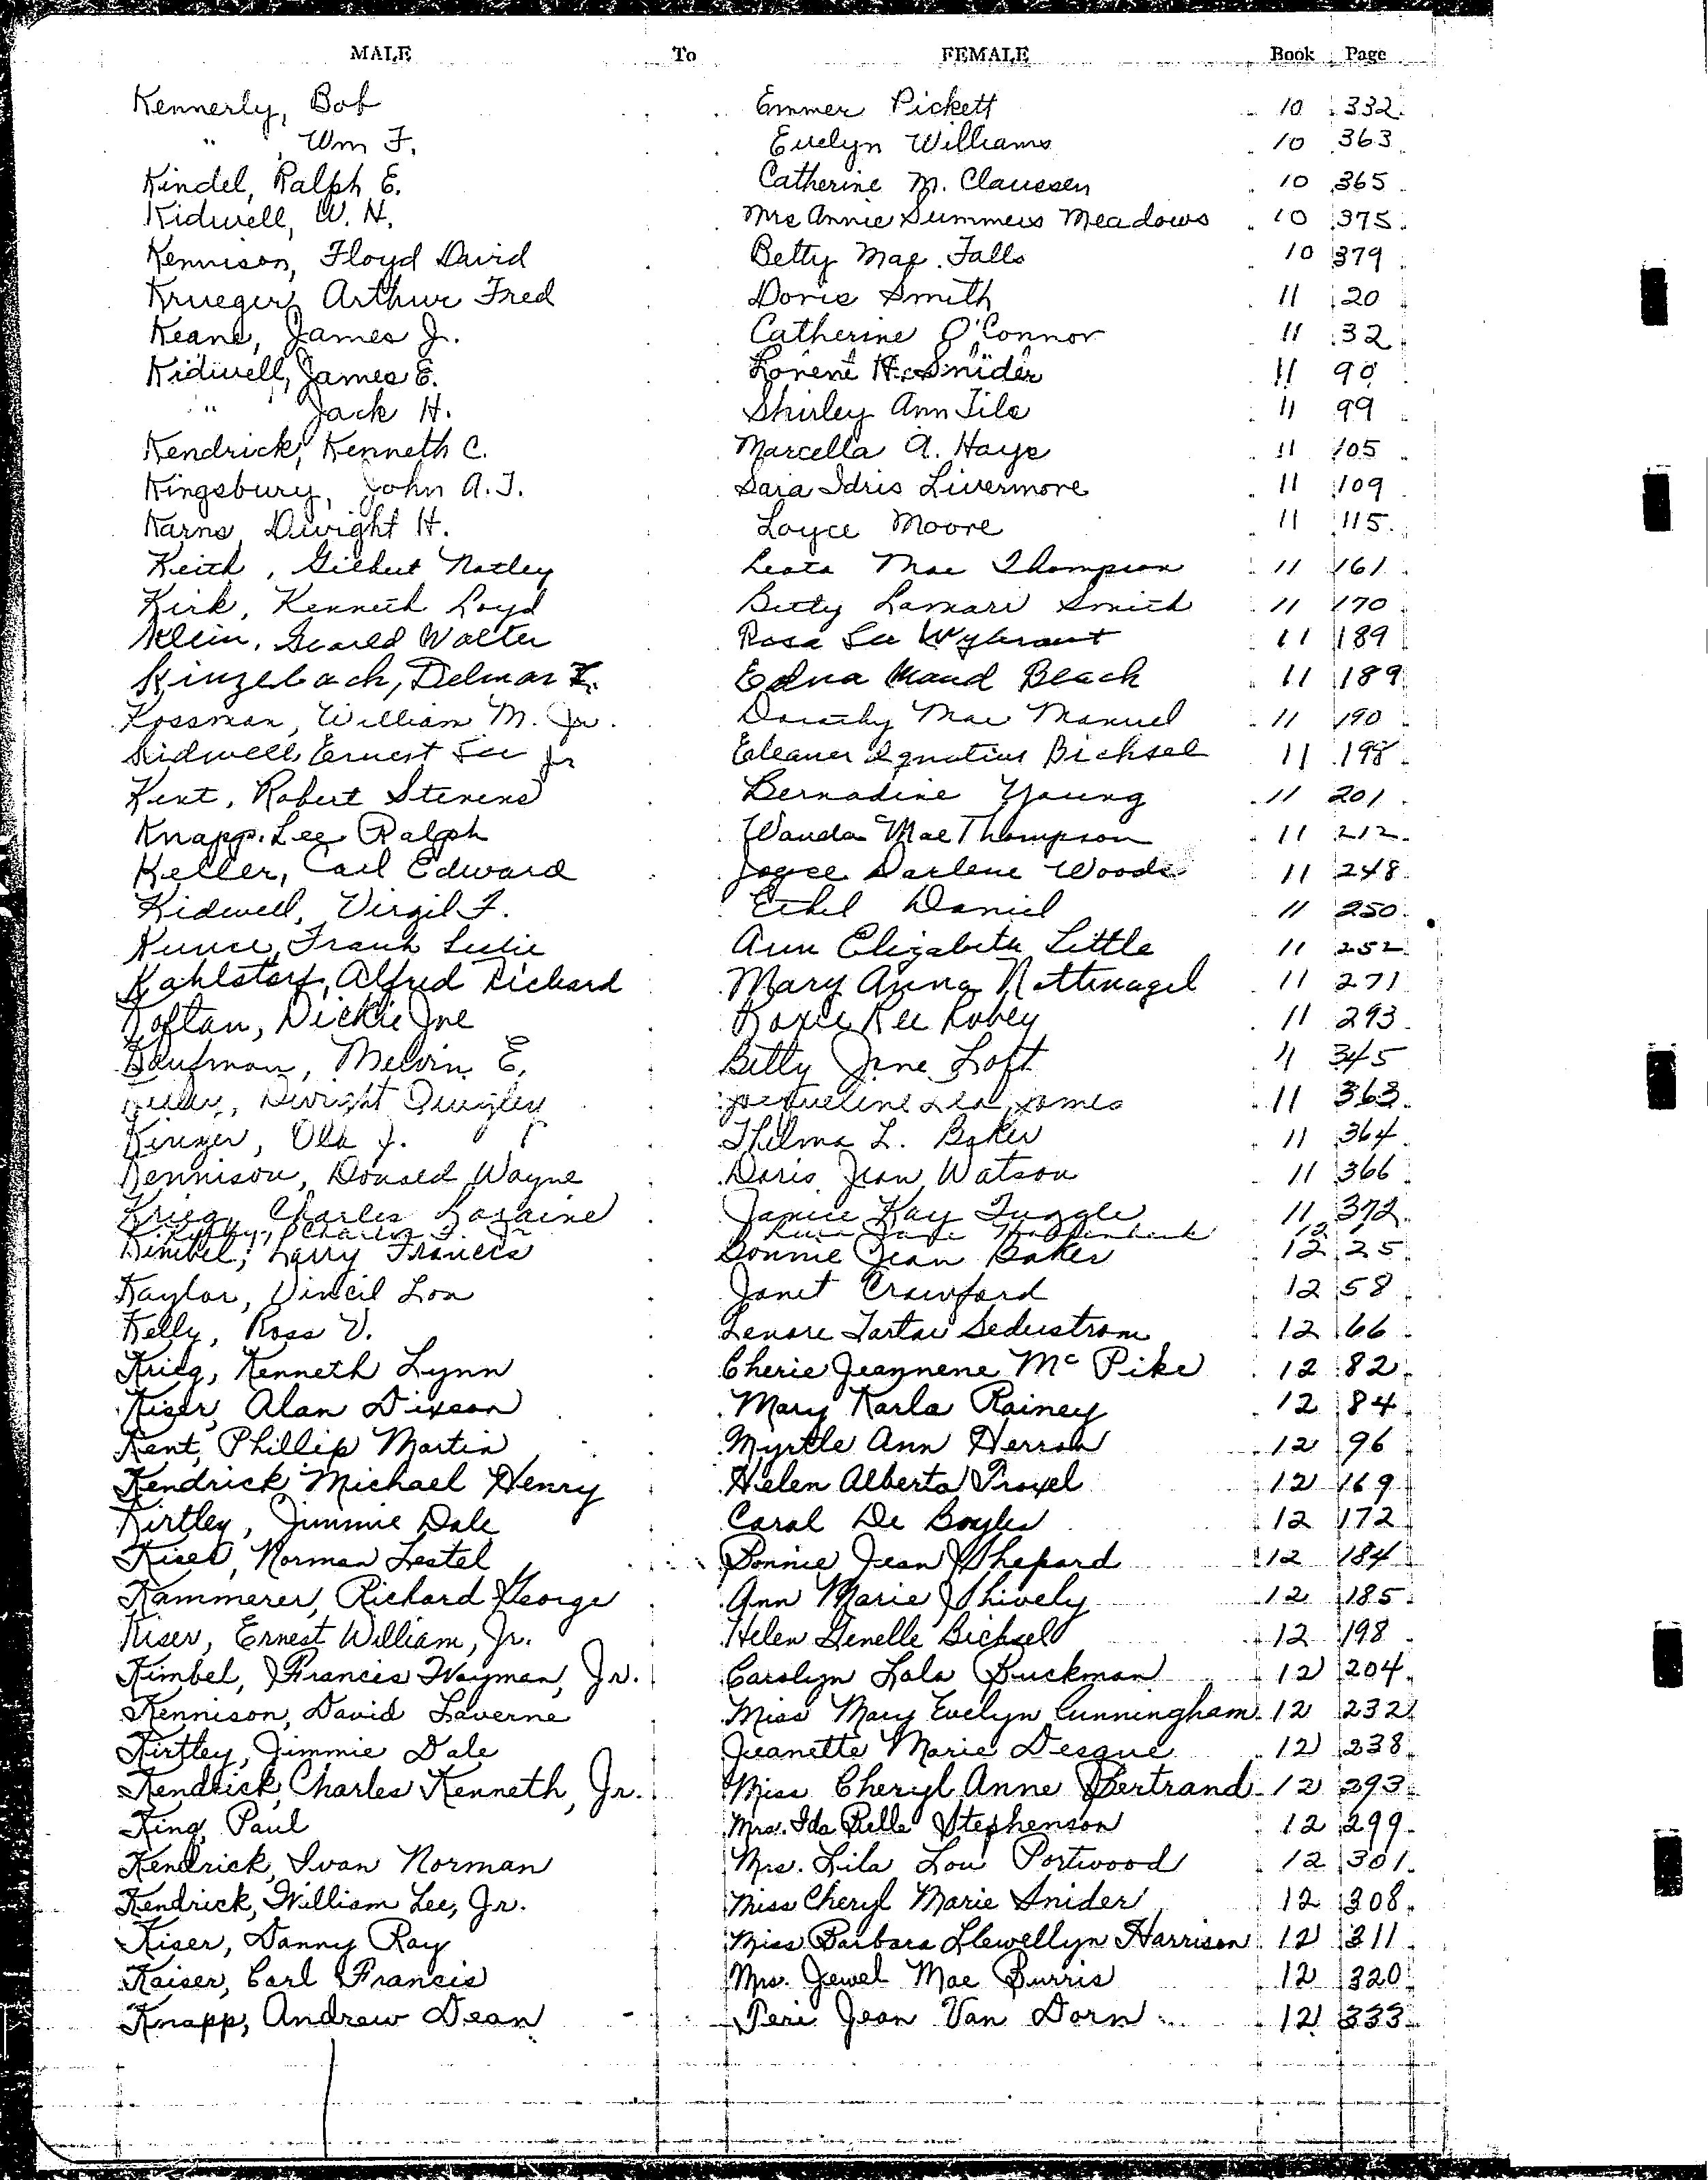 MALE To FEMALE Book Page
Kennerly, Bob Emmer Pickett 10 332
" , Wm F. Evelyn Williams 10 363
Kindel, Ralph E. Catherine M. Claussen 10 365
Kidwell, W. H. Mrs Annie Summers Meadows 10 375
Kennison, Floyd David Betty Mae Falls 10 379
Krueger, Arthur Fred Doris Smith 11 20
Keane, James Jr. Catherine O'Connor 11 32
Kidwell, James E. Lorene H. Snider 11 90
" Jack H. Shirley Ann 11 99
Kendrick, Kenneth C. Marcella A. Hays 11 105
Kingsbury, John A.J. Sara Idris Livermore 11 109
Karns, Dwight H. Loyce Moore 11 115
Keith, Gilbert Leota Mae Thompson 11 161
Kirk, Kenneth Loyd Betty Lamarr Smith 11 170
Klein, Gerald Walter Rosa Lee 11 189
Kinzelbach, Delmar Edna Maud Beach 11 189
Kossman, William M. Jr. Dorothy Mae Manuel 11 190
Kidwell, Ernest Lee Jr Eleanor Ignatius Bichsel 11 198
Kent, Robert Stevens Bernadine Young 11 201
Knapp, Lee Ralph Wanda Mae Thompson 11 212
Keller, Carl Edward Joyce Darlene Woods 11 248
Kidwell, Virgil F. Ethel Daniel 11 250
Kunce, Frank Leslie Ann Elizabeth Little 11 252
Kahlstorf, Alfred Richard Mary Anna Nottnagel 11 271
Koftan, Dickie Joe Roxie Robey 11 293
Kaufman, Melvin E. Betty Jane Loft 11 345
Dwight Quigley Jacqueline 11 363
Kinzer, Ola J. Thelma L. Baker 11 364
Kennison, Donald Wayne Doris Jean Watson 11 366
Krieg, Charles Loraine Janice Kay Tuggle 11 372
Charles F. Jr 12
Kimbel, Larry Francis Bonnie Jean Baker 12 25
Kaylor, Vincil Lon Janet Crawford 12 58
Kelly, Ross V. Lenore Sederstrom 12 66
Krieg, Kenneth Lynn Cherie Jeannene McPike 12 82
Kiser, Alan Dixson Mary Karla Rainey 12 84
Kent, Phillip Martin Myrtle Ann Herron 12 96
Kendrick Michael Henry Helen Alberta Troxel 12 169
Kirtley, Jimmie Dale Carol De Boyles 12 172
Kiser, Norman Lestel Bonnie Jean Shepard 12 184
Kammerer, Richard George Ann Marie Shively 12 185
Kiser, Ernest William, Jr. Helen Genelle Bichsel 12 198
Kimbel, Francis Wayman, Jr. Carolyn Lola Buckman 12 204
Kennison, David Laverne Miss Mary Evelyn Cunningham 12 232
Kirtley, Jimmie Dale Jeanette Marie Desque 12 238
Kendrick, Charles Kenneth, Jr. Miss Cheryl Anne Bertrand 12 293
King, Paul Mrs. Ida Belle Stephenson 12 299
Kendrick, Ivan Norman Mrs. Lila Lou Portwood 12 301
Kendrick, William Lee, Jr. Miss Cheryl Marie Snider 12 308
Kiser, Danny Ray Miss Barbara Llewellyn Harrison 12 311
Kaiser, Carl Francis Mrs. Jewel Mae Burris 12 320
Knapp, Andrew Dean Peri Jean Van Dorn 12 333